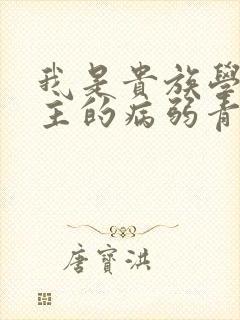 我是貴族學
主的病弱青
唐寶洪